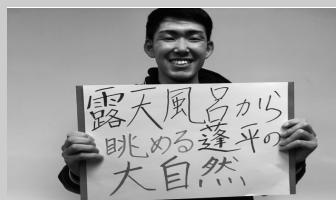 露天風呂から
眺める蓬平の
大自然